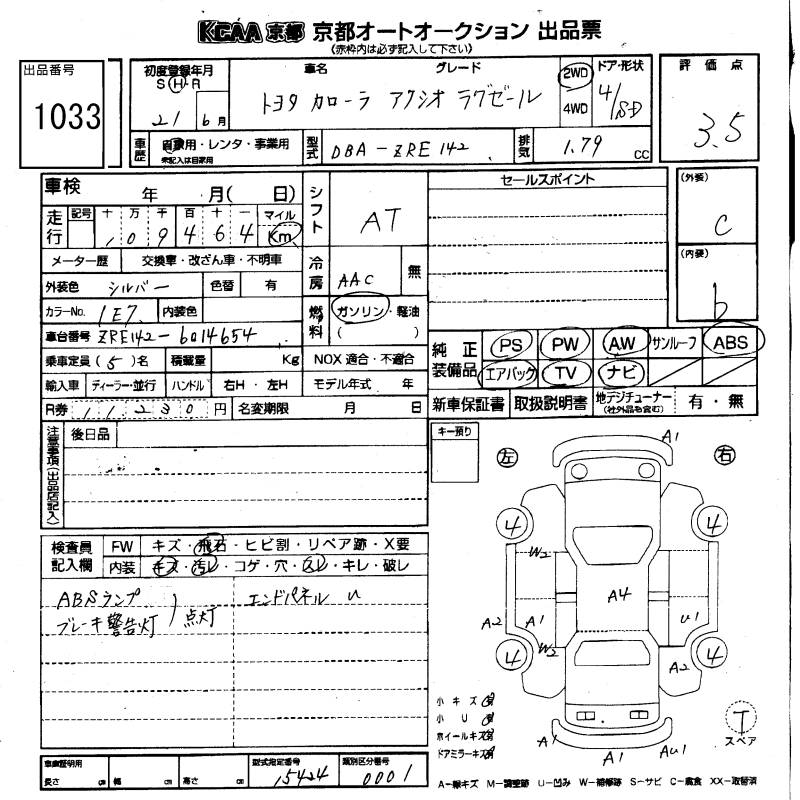 KCAA 京都 京都オートオークション 出品票
(赤枠内は必ず記入して下さい)
出品番号
1033
初度登録年月
S H R
21 6月
車名 グレード
トヨタ カローラ アクシオ ラグゼール
2WD
4WD
ドア・形状
4/SD
評価点
3.5
車歴
自家用・レンタ・事業用
未記入は自家用
型式
DBA-ZRE142
排気
1.79 cc
車検 年 月( 日)
走行
記号 十 万 千 百 十 一 マイル
1 0 9 4 6 4 Km
メーター歴 交換車・改ざん車・不明車
外装色 シルバー 色替 有
カラーNo. 1E7 内装色
車台番号 ZRE142-6014654
乗車定員(5)名 積載量 Kg
輸入車 ディーラー・並行 ハンドル 右H・左H
R券 11230円 名変期限 月 日
シフト
AT
冷房
AAC 無
燃料
ガソリン・軽油
( )
NOX 適合・不適合
モデル年式 年
セールスポイント
(外装)
C
(内装)
b
純正装備品
PS PW AW サンルーフ ABS
エアバック TV ナビ
新車保証書 取扱説明書 地デジチューナー(社外品も含む) 有・無
注意事項(出品店記入)
後日品
キー預り
検査員記入欄
FW キズ・飛石・ヒビ割・リペア跡・X要
内装 キズ・汚レ・コゲ・穴・スレ・キレ・破レ
ABSランプ
ブレーキ警告灯 ) 点灯
エンドパネル U
左 右
A1
4 4
W2
A4
A2 A1 U1
4 4
W2 A2
A1 A1 AU1
小キズ 有
小U 有
ホイールキズ 有
ドアミラーキズ 有
T
スペア
車庫証明用
長さ cm 幅 cm 高さ cm
型式指定番号
15424
類別区分番号
0001
A-線キズ M-調整跡 U-凹み W-補修跡 S-サビ C-腐食 XX-取替済